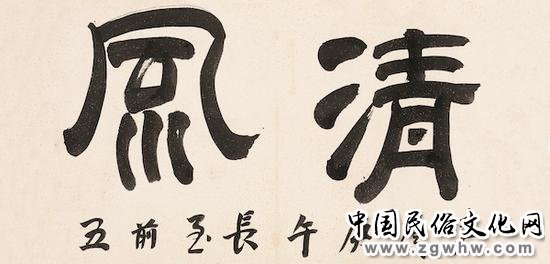 清風
午長至前五
中国民俗文化网
www.zgwhw.com